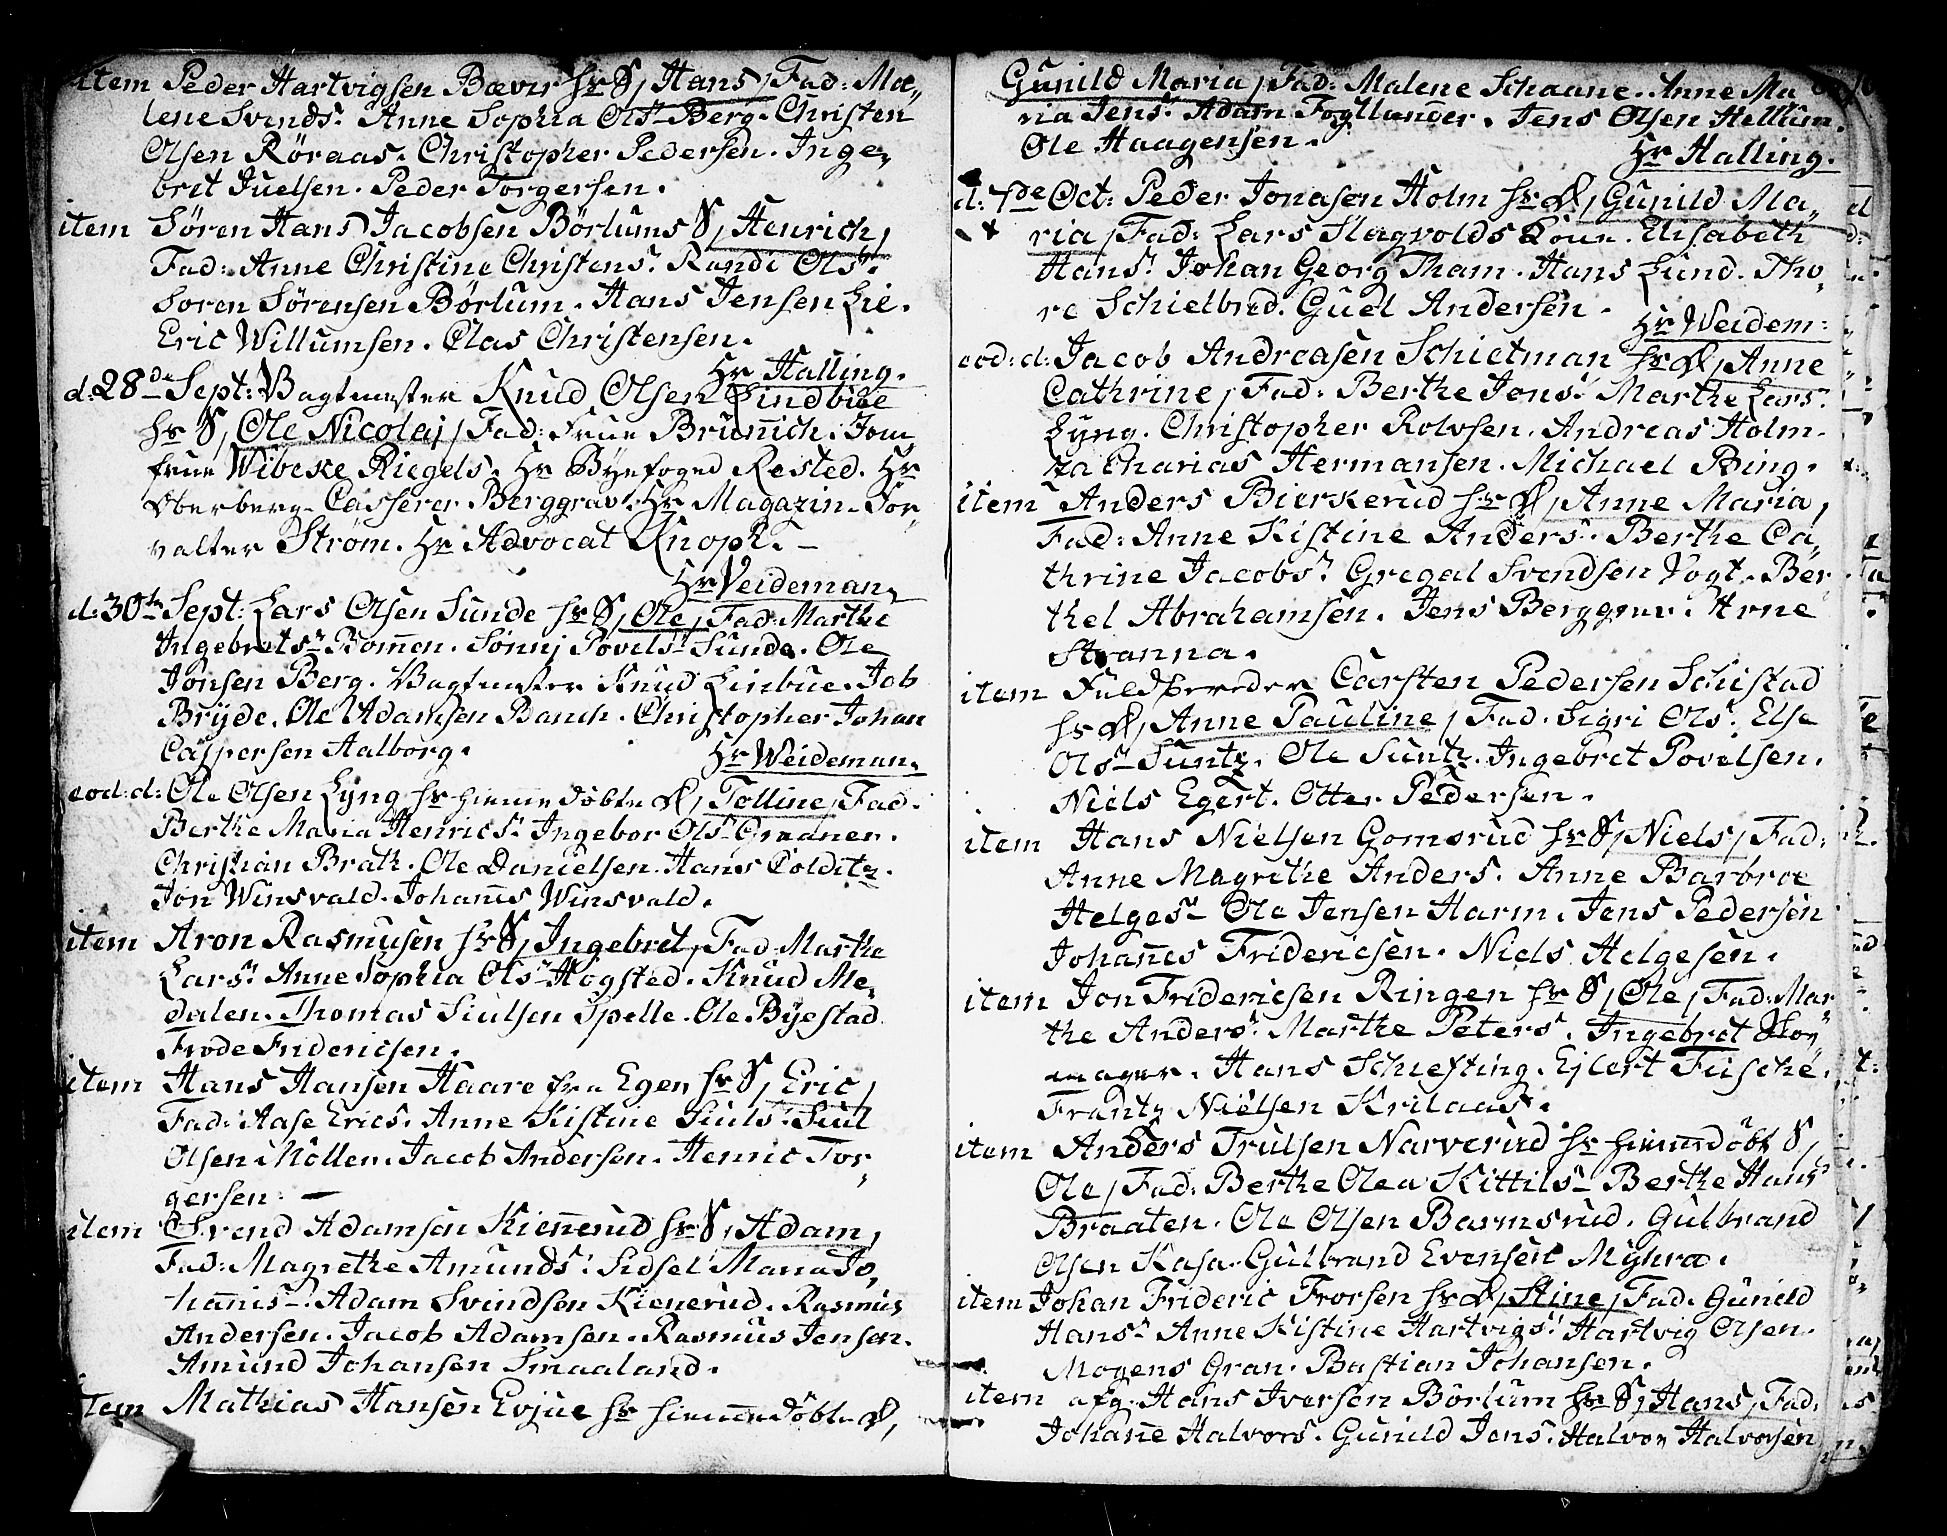 item Peder Hartvigsen Bævir hr S, Hans, Fad: Ma-
lene Svends: Anne Sophia Ols: Berg. Christen
Olsen Røraas. Christopher Pedersen. Inge-
bret Juelsen. Peder Torgersen.
item Søren Hans Jacobsen Börlums S, Henrich,
Fad: Anne Christine Christens: Randi Ols:
Soren Sörensen Börlum. Hans Jensen Lie.
Eric Willumsen. Clas Christensen.
Hr Halling.
d: 28de Sept: Bagtmester Knud Olsen Lindbüe
hr S, Ole Nicolaj, Fad: Frue Brünnich. Jom
frue Wibeke Riegels. Hr Byefoged Rested. Hr
Oberberg-Casserer Berggrav. Hr Magazin-For-
valter Strøm. Hr Advocat Knoph. -
Hr Veideman.
d: 30te Sept: Lars Olsen Sunde hr S, Ole, Fad: Marthe
Ingebrets: Bommen. Sönnj Povels: Sunde. Ole
Jonsen Berg. Vagtmester Knud Linbüe. Job
Bryde. Ole Adamsen Banch. Christopher Johan
Caspersen Aalborg.
Hr Weideman.
eod: d: Ole Olsen Lyng hr hiemmedöbte D, Tolline, Fad.
Berthe Maria Henrics: Ingebor Ols: Gradner.
Christian Brath. Ole Danielsen. Hans Colditz.
Jon Winsvald. Johannes Winsvald.
item Aron Rasmusen hr S, Ingebret, Fad: Marthe
Lars: Anne Sophia Ols: Hogsted. Knud Me-
dalen. Thomas Siulsen Spelle. Ole Byestad
Frode Fridericsen.
item Hans Hansen Haare fra Eger hr S, Eric,
Fad: Aase Erics: Anne Kistine Siuls: Siul
Olsen Möllen. Jacob Andersen. Henric Tor-
gersen. -
item Svend Adamsen Kiennerud hr S, Adam,
Fad: Magrethe Amunds: Sidsel Maria Jo-
hannis: Adam Svindsen Kienerud. Rasmus
Andersen. Jacob Adamsen. Rasmus Jensen.
Amund Johansen Smaaland.
item Mathias Hansen Evjue hr hiemmedöbte D,
Gunild Maria, Fad: Malene Schaane. Anne Ma
ria Jens: Adam Fogllander. Jens Olsen Hellum.
Ole Haagensen.
Hr Halling.
d: 7de Oct: Peder Jonasen Holm hr D, Gunild Ma-
ria, Fad: Lars Slagvolds Kone. Elisabeth
Hans: Johan Georg Tham. Hans Lund. Tho-
re Schielbred. Guel Andersen.
Hr Weidem:
eod: d: Jacob Andreasen Schietman hr D, Anne
Cathrine, Fad: Berthe Jons: Marthe Lars:
Lyng. Christopher Rolvsen. Andreas Holm.
Zacharias Hermansen. Michael Bing.
item Anders Bierkerud hr D, Anne Maria,
Fad: Anne Kistine Anders: Berthe Ca-
thrine Jacobs: Gregal Svendsen Vogt. Ber-
thel Abrahamsen. Jens Berggren. Arne
Stranna.
item Fuldbereder Carsten Pedersen Schistad
hr D, Anne Pauline, Fad: Sigri Ols: Else
Ols: Suntz. Ole Suntz. Ingebret Povelsen.
Niels Egert. Otter Pedersen.
item Hans Nielsen Gomsrud hr S, Niels, Fad:
Anne Magrethe Anders: Anne Barbroe
Helges: Ole Jensen Harm. Jens Pedersen
Johannes Fridericsen. Niels Helgesen.
item Jon Fridericsen Ringen hr S, Ole, Fad: Mar
the Anders: Marthe Peters: Ingebret Skoe-
mager. Hans Schiefting. Ejlert Fusche.
Frantz Nielsen Krilaas.
item Anders Trulsen Narverud hr hiemmedöbt S,
Ole, Fad: Berthe Olea Kittils: Berthe Hans
Braaten. Ole Olsen Barmsrud. Gulbrand
Olsen Kasa. Gulbrand Evensen Myhra.
item Johan Frideric Frorsen hr D, Stine, Fad. Gunild
Hans: Anne Kistine Hartvigs: Hartvig Olsen.
Mogens Gran. Bastian Johansen.
item afg: Hans Iversen Börlum hr S, Hans, Fad.
Johanne Halvors: Gunild Jens: Halvor Halvorsen